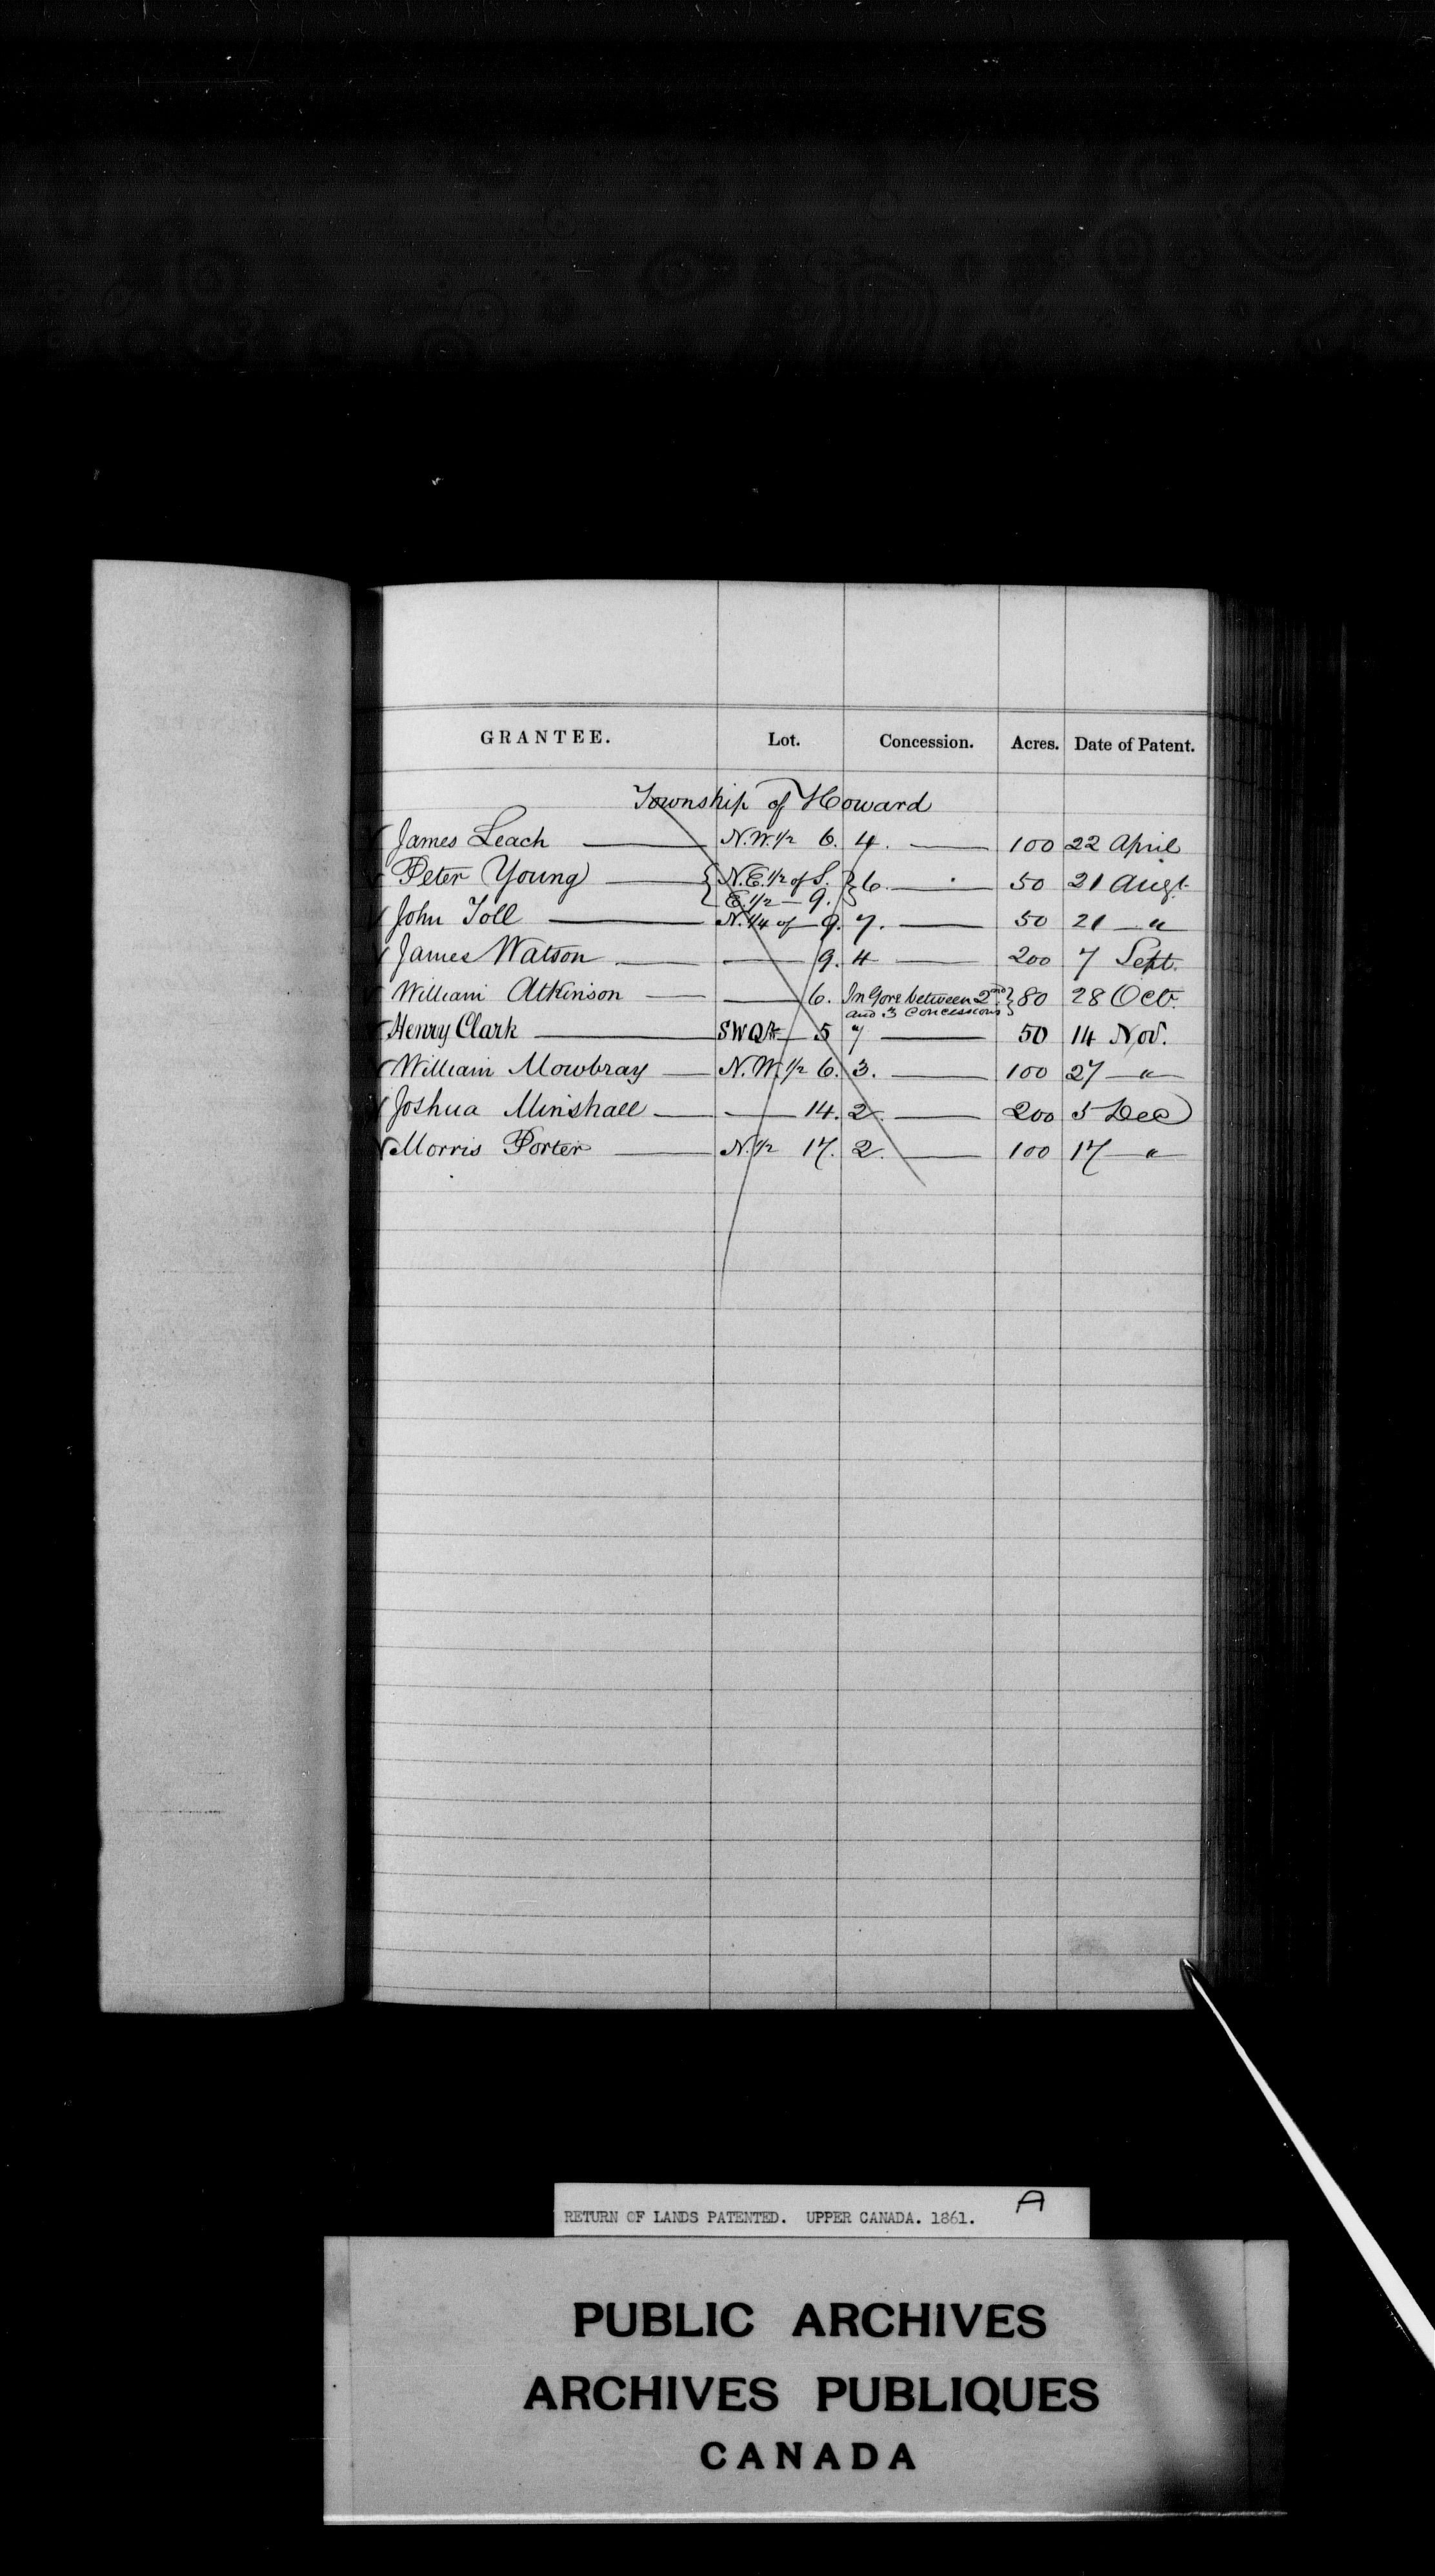 GRANTEE. Lot. Concession. Acres. Date of Patent.
Township of Howard
James Leach N.W. 1/2 6. 4. 100 22 April
Peter Young { N.E. 1/2 of S. } 6. 50 21 Augt.
E. 1/2 — 9.
John Toll N. 1/4 of 9. 7. 50 21 — "
James Watson — 9. 4 — 200 7 Sept.
William Atkinson — 6. In Gore between 2nd } 80 28 Oct.
and 3 Concessions
Henry Clark SW Qr — 5 7 — 50 14 Nov.
William Mowbray — N.W. 1/2 6. 3. — 100 27 — "
Joshua Minshall — 14. 2. — 200 5 Dec
Morris Porter — N. 1/2 17. 2. — 100 17 — "
RETURN OF LANDS PATENTED. UPPER CANADA. 1861. A
PUBLIC ARCHIVES
ARCHIVES PUBLIQUES
CANADA